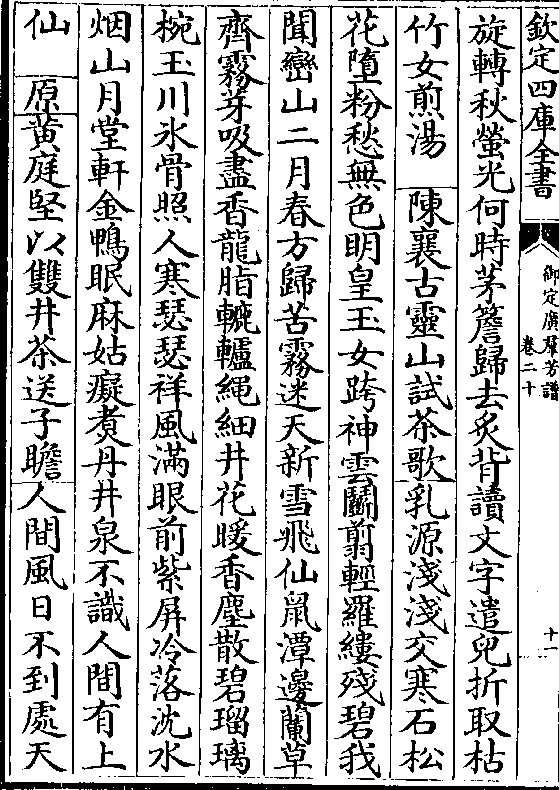 欽定四庫全書
御定廣羣芳譜
卷二十
十一
旋轉秋螢光何時茅簷歸去炙背讀文字遣兒折取枯
竹女煎湯 陳襄古靈山試茶歌乳源淺淺交寒石松
花墮粉愁無色明皇玉女跨神雲鬬翦輕羅縷殘碧我
聞巒山二月春方歸苦霧迷天新雪飛仙鼠潭邊蘭草
齊霧芽吸盡香龍脂轆轤繩細井花暖香塵散碧瑠璃
椀玉川冰骨照人寒瑟瑟祥風滿眼前紫屏冷落沈水
烟山月堂軒金鴨眠麻姑癡煑丹井泉不識人間有上
仙 原黃庭堅以雙井茶送子瞻人間風日不到處天